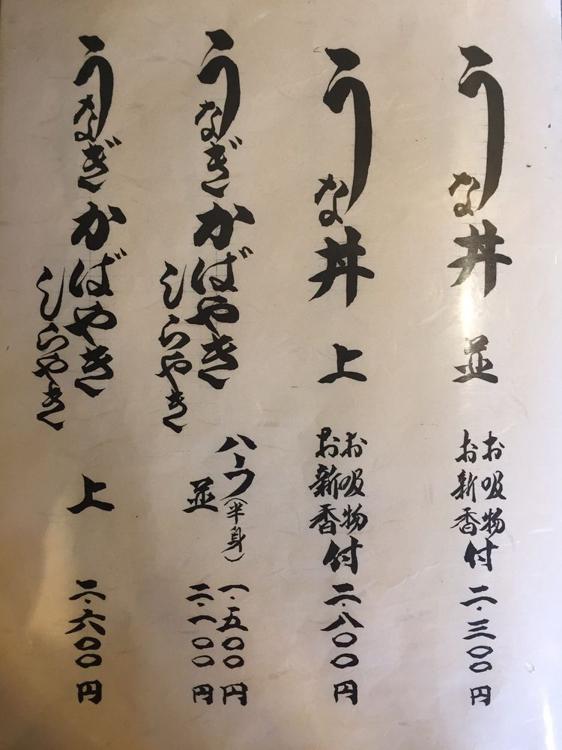 うな丼 並 お吸物 お新香付 二・三〇〇円
うな丼 上 お吸物 お新香付 二・八〇〇円
うなぎかばやき ハーフ(半身) 一・五〇〇円
しらやき 並 二・一〇〇円
うなぎかばやき
しらやき 上 二・六〇〇円